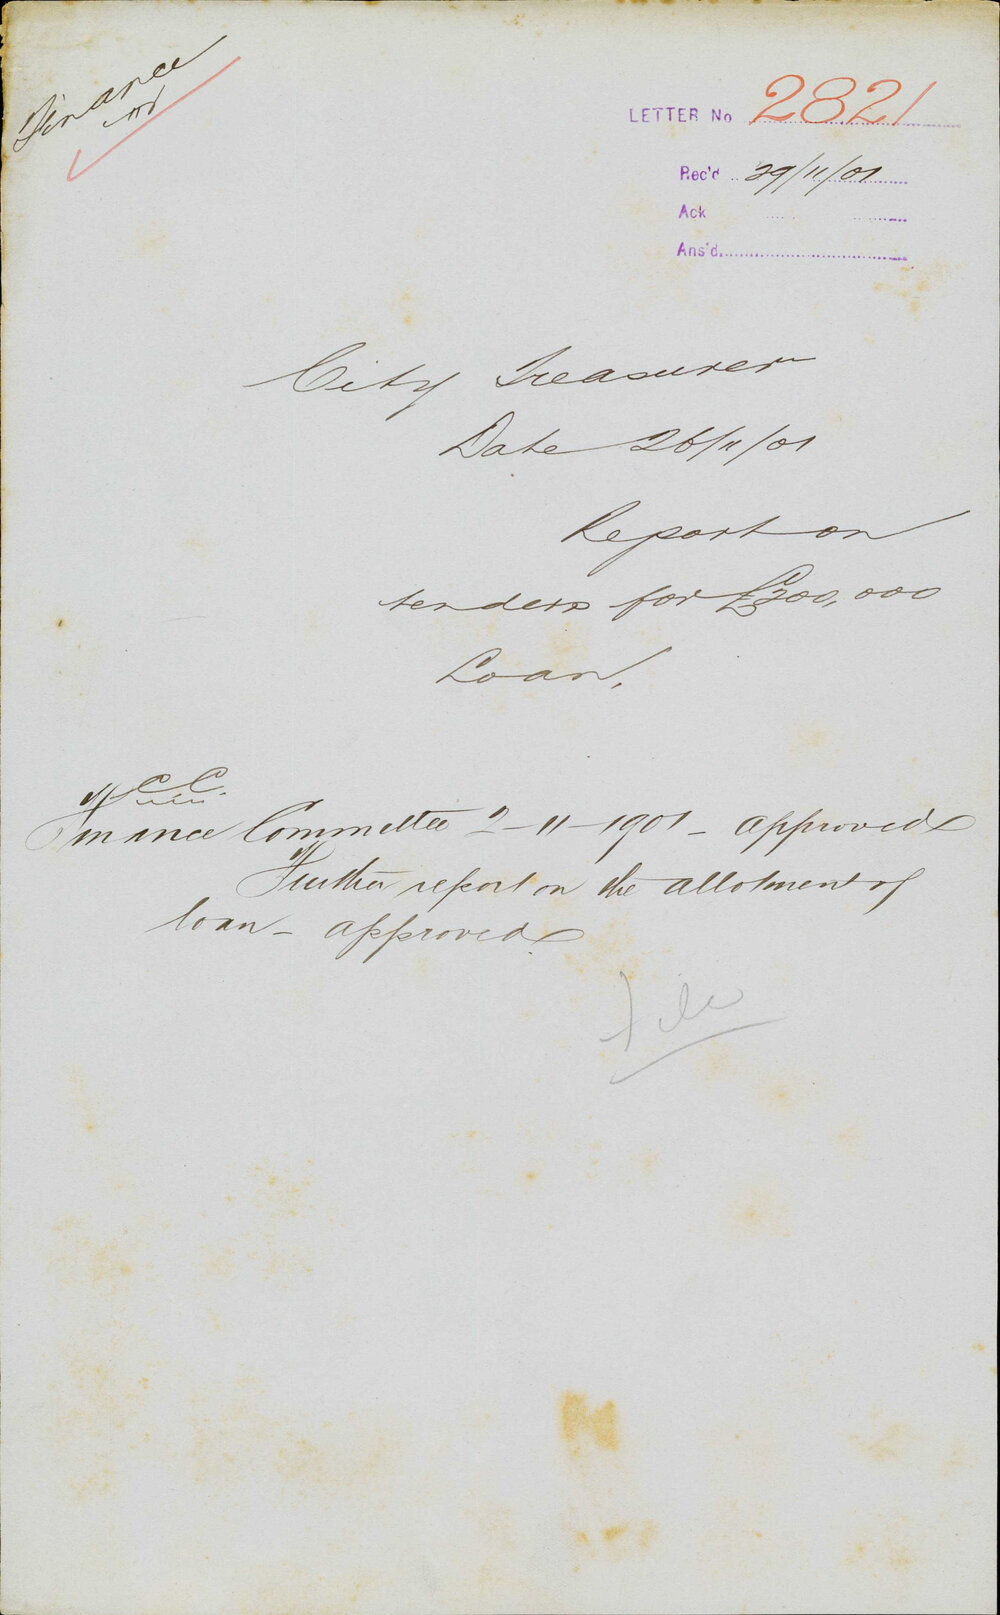 Finance
LETTER No 2821
Rec'd 29/11/01
Ack
Ans'd
City Treasurer
Date 26/11/01
Report on
tenders for £300,000
Loan,
C C.
Finance Committee 2-11-1901 - approved
Further report on the allotment of
loan - approved
File